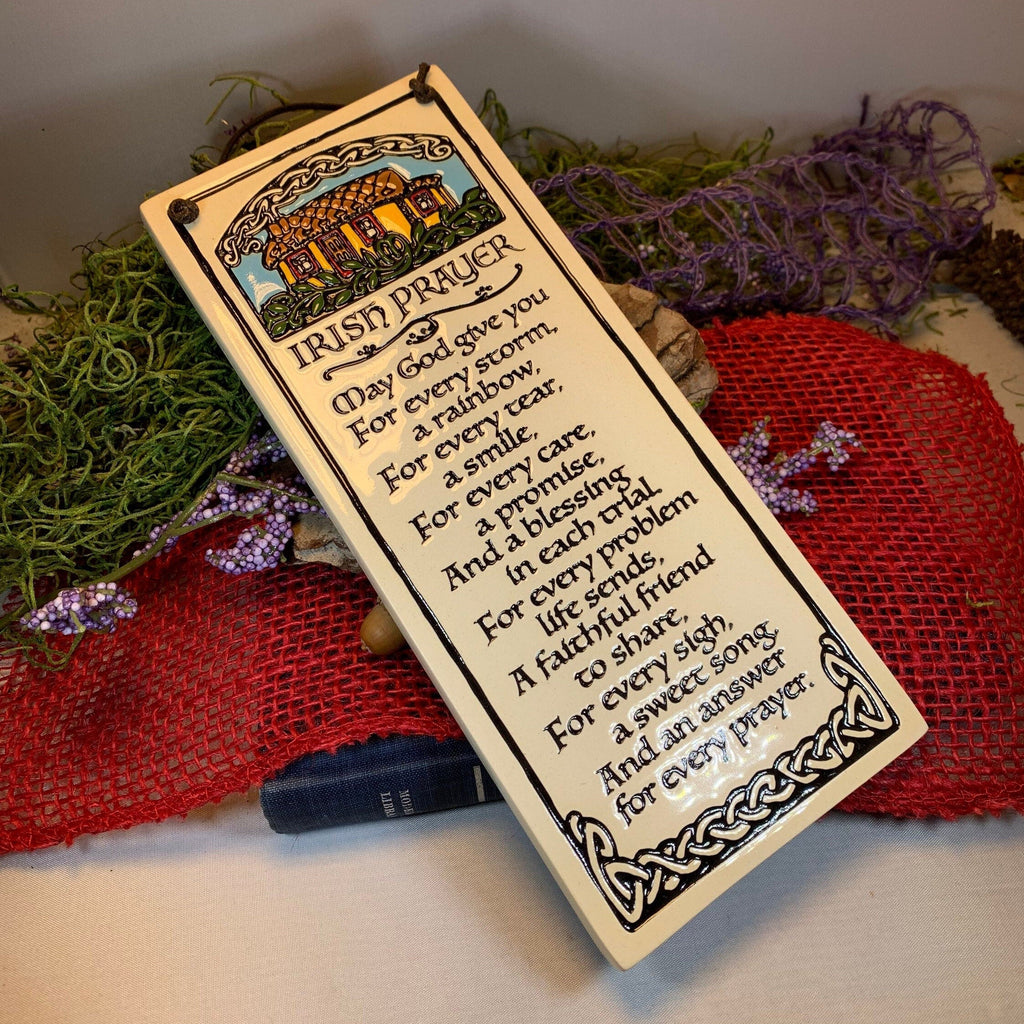 IRISH PRAYER
May God give you
For every storm,
a rainbow,
For every tear,
a smile,
For every care,
a promise,
And a blessing
in each trial.
For every problem
life sends,
A faithful friend
to share,
For every sigh,
a sweet song.
And an answer
for every prayer.